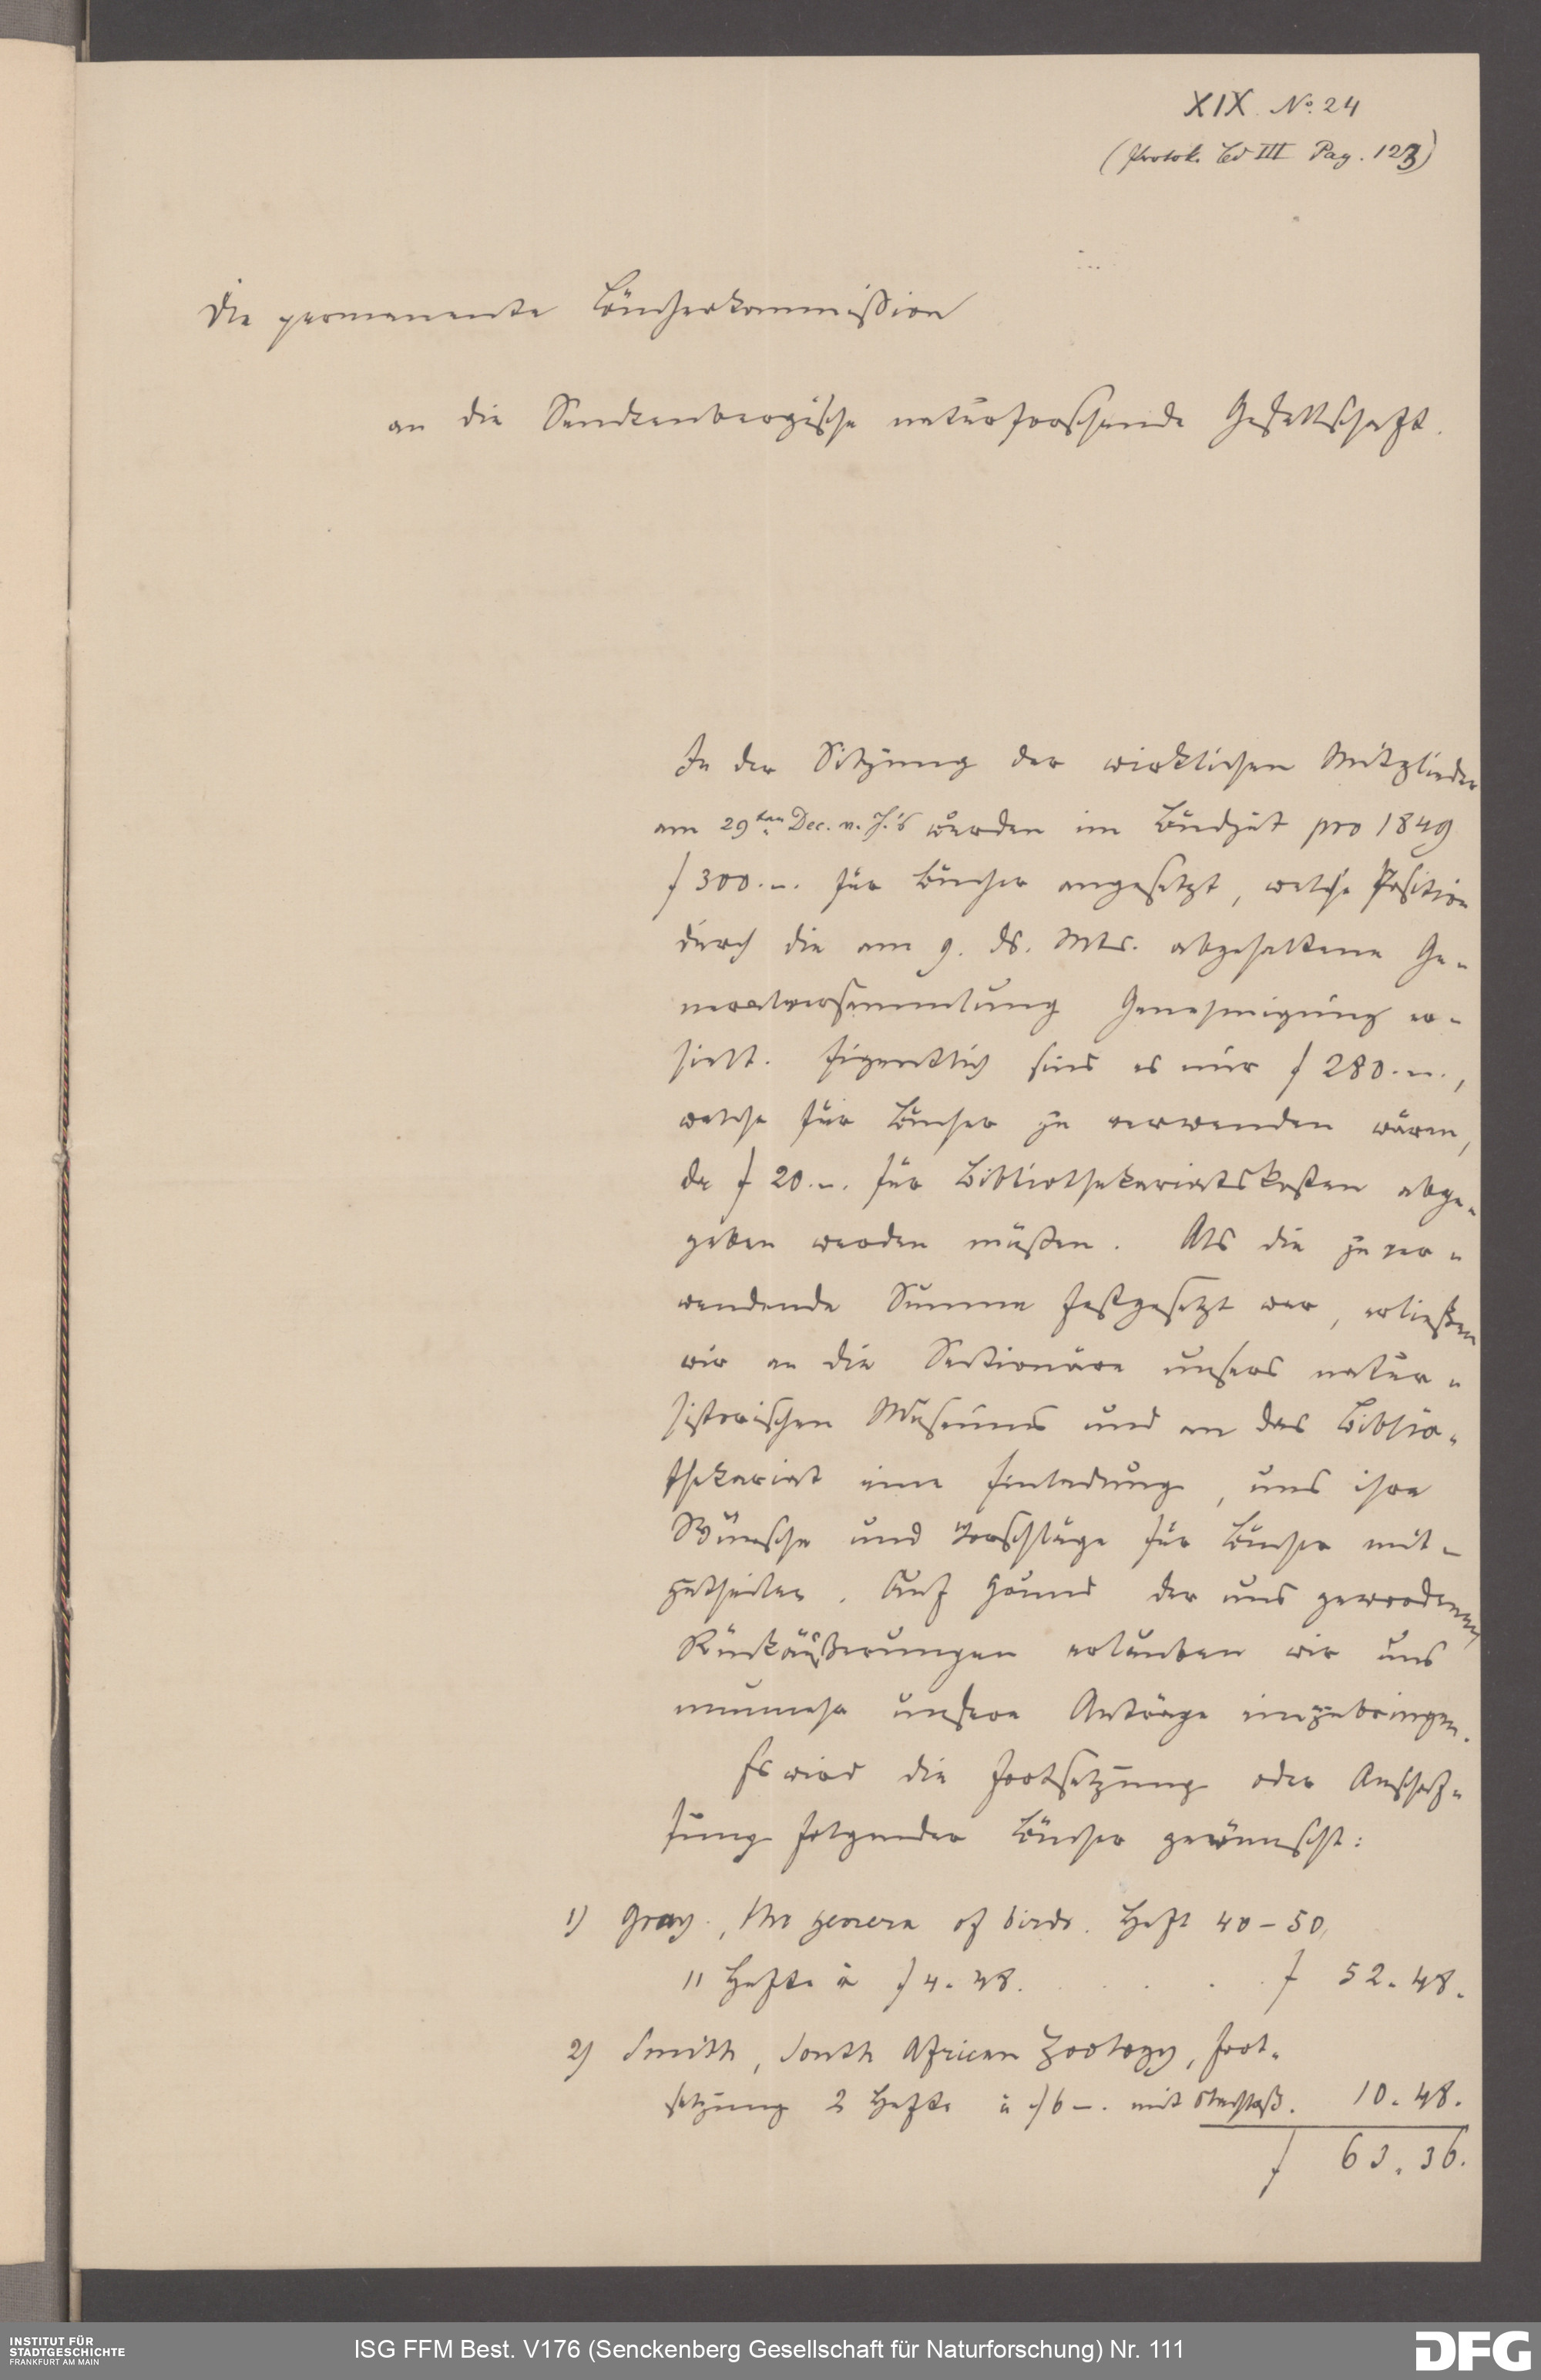 XIX. No. 24
(Protok. Bd III Pag. 123)
Die permanente Bücherkommission
an die Senckenbergische naturforschende Gesellschaft.
In der Sitzung der wirklichen Mitglieder
am 29ten Dec. v. J.'s wurden im Budget pro 1849
f 300.–. für Bücher angesetzt, welche Position
durch die am 9. ds. Mts. abgehaltene Ge-
neralversammlung Genehmigung er-
hielt. Eigentlich sind es nur f 280.–.,
welche für Bücher zu verwenden wären,
da f 20.–. für Bibliothekariatskosten abge-
geben werden müßen. Als die zu ver-
wendende Summe festgesetzt war, erließen
wir an die Sectionäre unsers natur-
historischen Museums und an das Biblio-
thekariat eine Einladung, uns ihre
Wünsche und Vorschläge für Bücher mit-
zutheilen. Auf Grund der uns gewordenen
Rückäußerungen erlauben wir uns
nunmehr unsere Anträge einzubringen.
Es wird die Fortsetzung oder Anschaf-
fung folgender Bücher gewünscht:
1) Gray., The genera of birds. Heft 40–50,
11 Hefte à f 4. 48. . . . . f 52. 48.
2) Smith, South African Zoology, Fort-
setzung 2 Hefte à f 6 –. mit 10. 48.
f 63. 36.
INSTITUT FÜR
STADTGESCHICHTE
FRANKFURT AM MAIN
ISG FFM Best. V176 (Senckenberg Gesellschaft für Naturforschung) Nr. 111
DFG